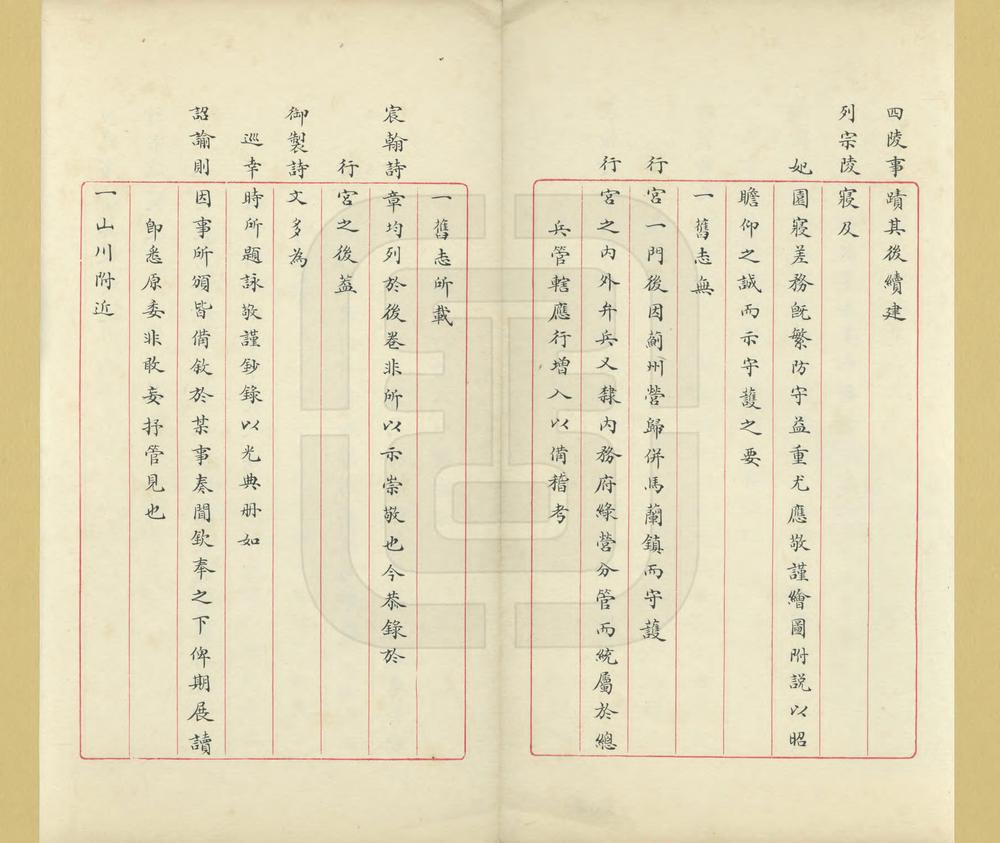 四陵事蹟其後續建
列宗陵寢及
妃園寢差務既繁防守益重尤應敬謹繪圖附説以昭
瞻仰之誠而示守護之要
一舊志無
行宮一門後因薊州營歸併馬蘭鎮而守護
行宮之內外弁兵又隸內務府綠營分管而統屬於總
兵管轄應行增入以備稽考
一舊志所載
宸翰詩章均列於後卷非所以示崇敬也今恭錄於
行宮之後蓋
御製詩文多為
巡幸時所題詠敬謹鈔錄以光典册如
詔諭則因事所頒皆備敘於某事奏聞欽奉之下俾期展讀
卽悉原委非敢妄抒管見也
一山川附近